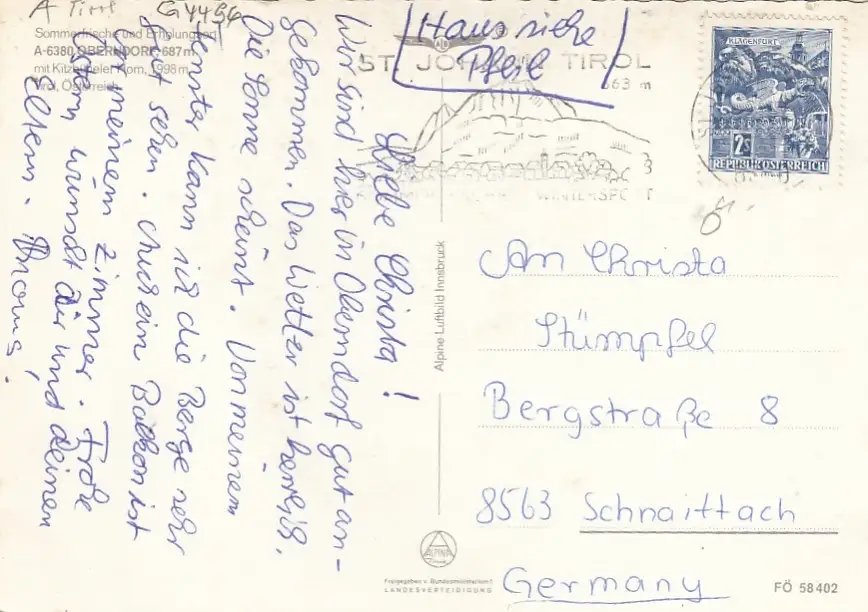 A Tirol G4456
Sommerfrische und Erholungsort
A-6380 OBERNDORF, 687 m
mit Kitzbüheler Horn, 1998 m
Tirol, Österreich
Haus siehe
Pfeil
ST. JOHANN TIROL
663 m
WINTERSPORT
KLAGENFURT
2S
REPUBLIK ÖSTERREICH
Liebe Christa!
Wir sind hier in Oberndorf gut an-
gekommen. Das Wetter ist herrlich.
Die Sonne scheint. Von meinem
Fenster kann ich die Berge sehr
gut sehen. Auch ein Balkon ist
in meinem Zimmer. Frohe
Ostern wünscht dir und deinen
Eltern. Thomas.
Alpine Luftbild Innsbruck
An Christa
Stümpfel
Bergstraße 8
8563 Schnaittach
Germany
ALPINA
Freigegeben v. Bundesministerium f.
LANDESVERTEIDIGUNG
FÖ 58402